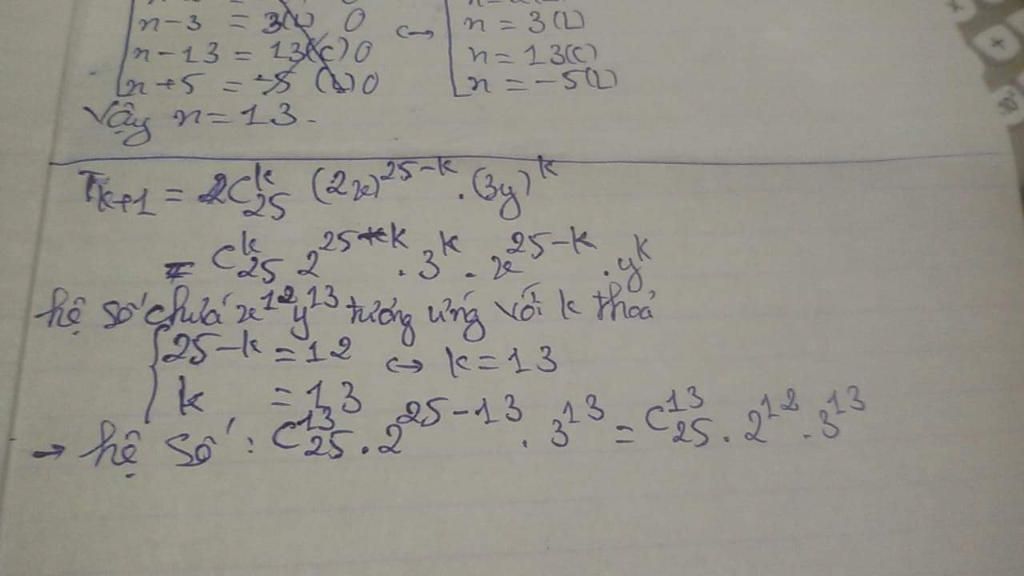 n-3 = 3(L) 0 ↔ n = 3(L)
n-13 = 13(C) 0 n = 13(C)
n+5 = -5 (L) 0 n = -5(L)
Vậy n=13.
T_{k+1} = 2C_{25}^{k} (2x)^{25-k} . (3y)^{k}
= C_{25}^{k} 2^{25-k} . 3^{k} . x^{25-k} . y^{k}
hệ số chứa x^{12}y^{13} tương ứng với k thoả
{25-k = 12 ↔ k=13
k = 13
→ hệ số : C_{25}^{13} . 2^{25-13} . 3^{13} = C_{25}^{13} . 2^{12} . 3^{13}